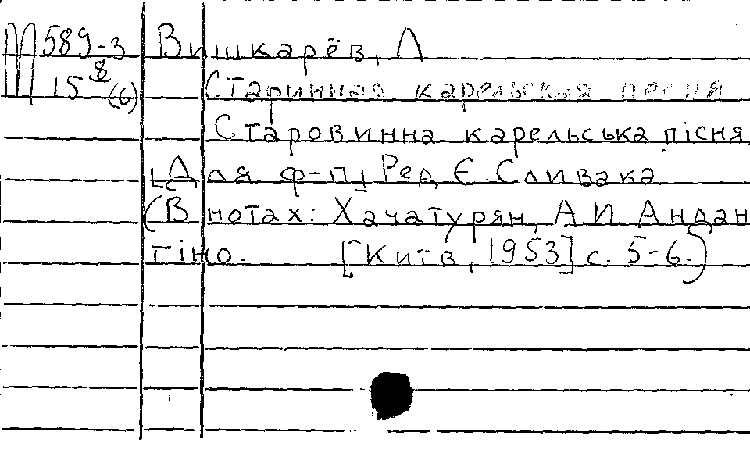 М 589-3 Вишкарёв, Л
15 8 (6) Старинная карельская песня
Старовинна карельська пісня
[Для ф-п] Ред. Є. Сливака
(В нотах: Хачатурян, А И Андан
тіно. [Київ, 1953] с. 5-6.)